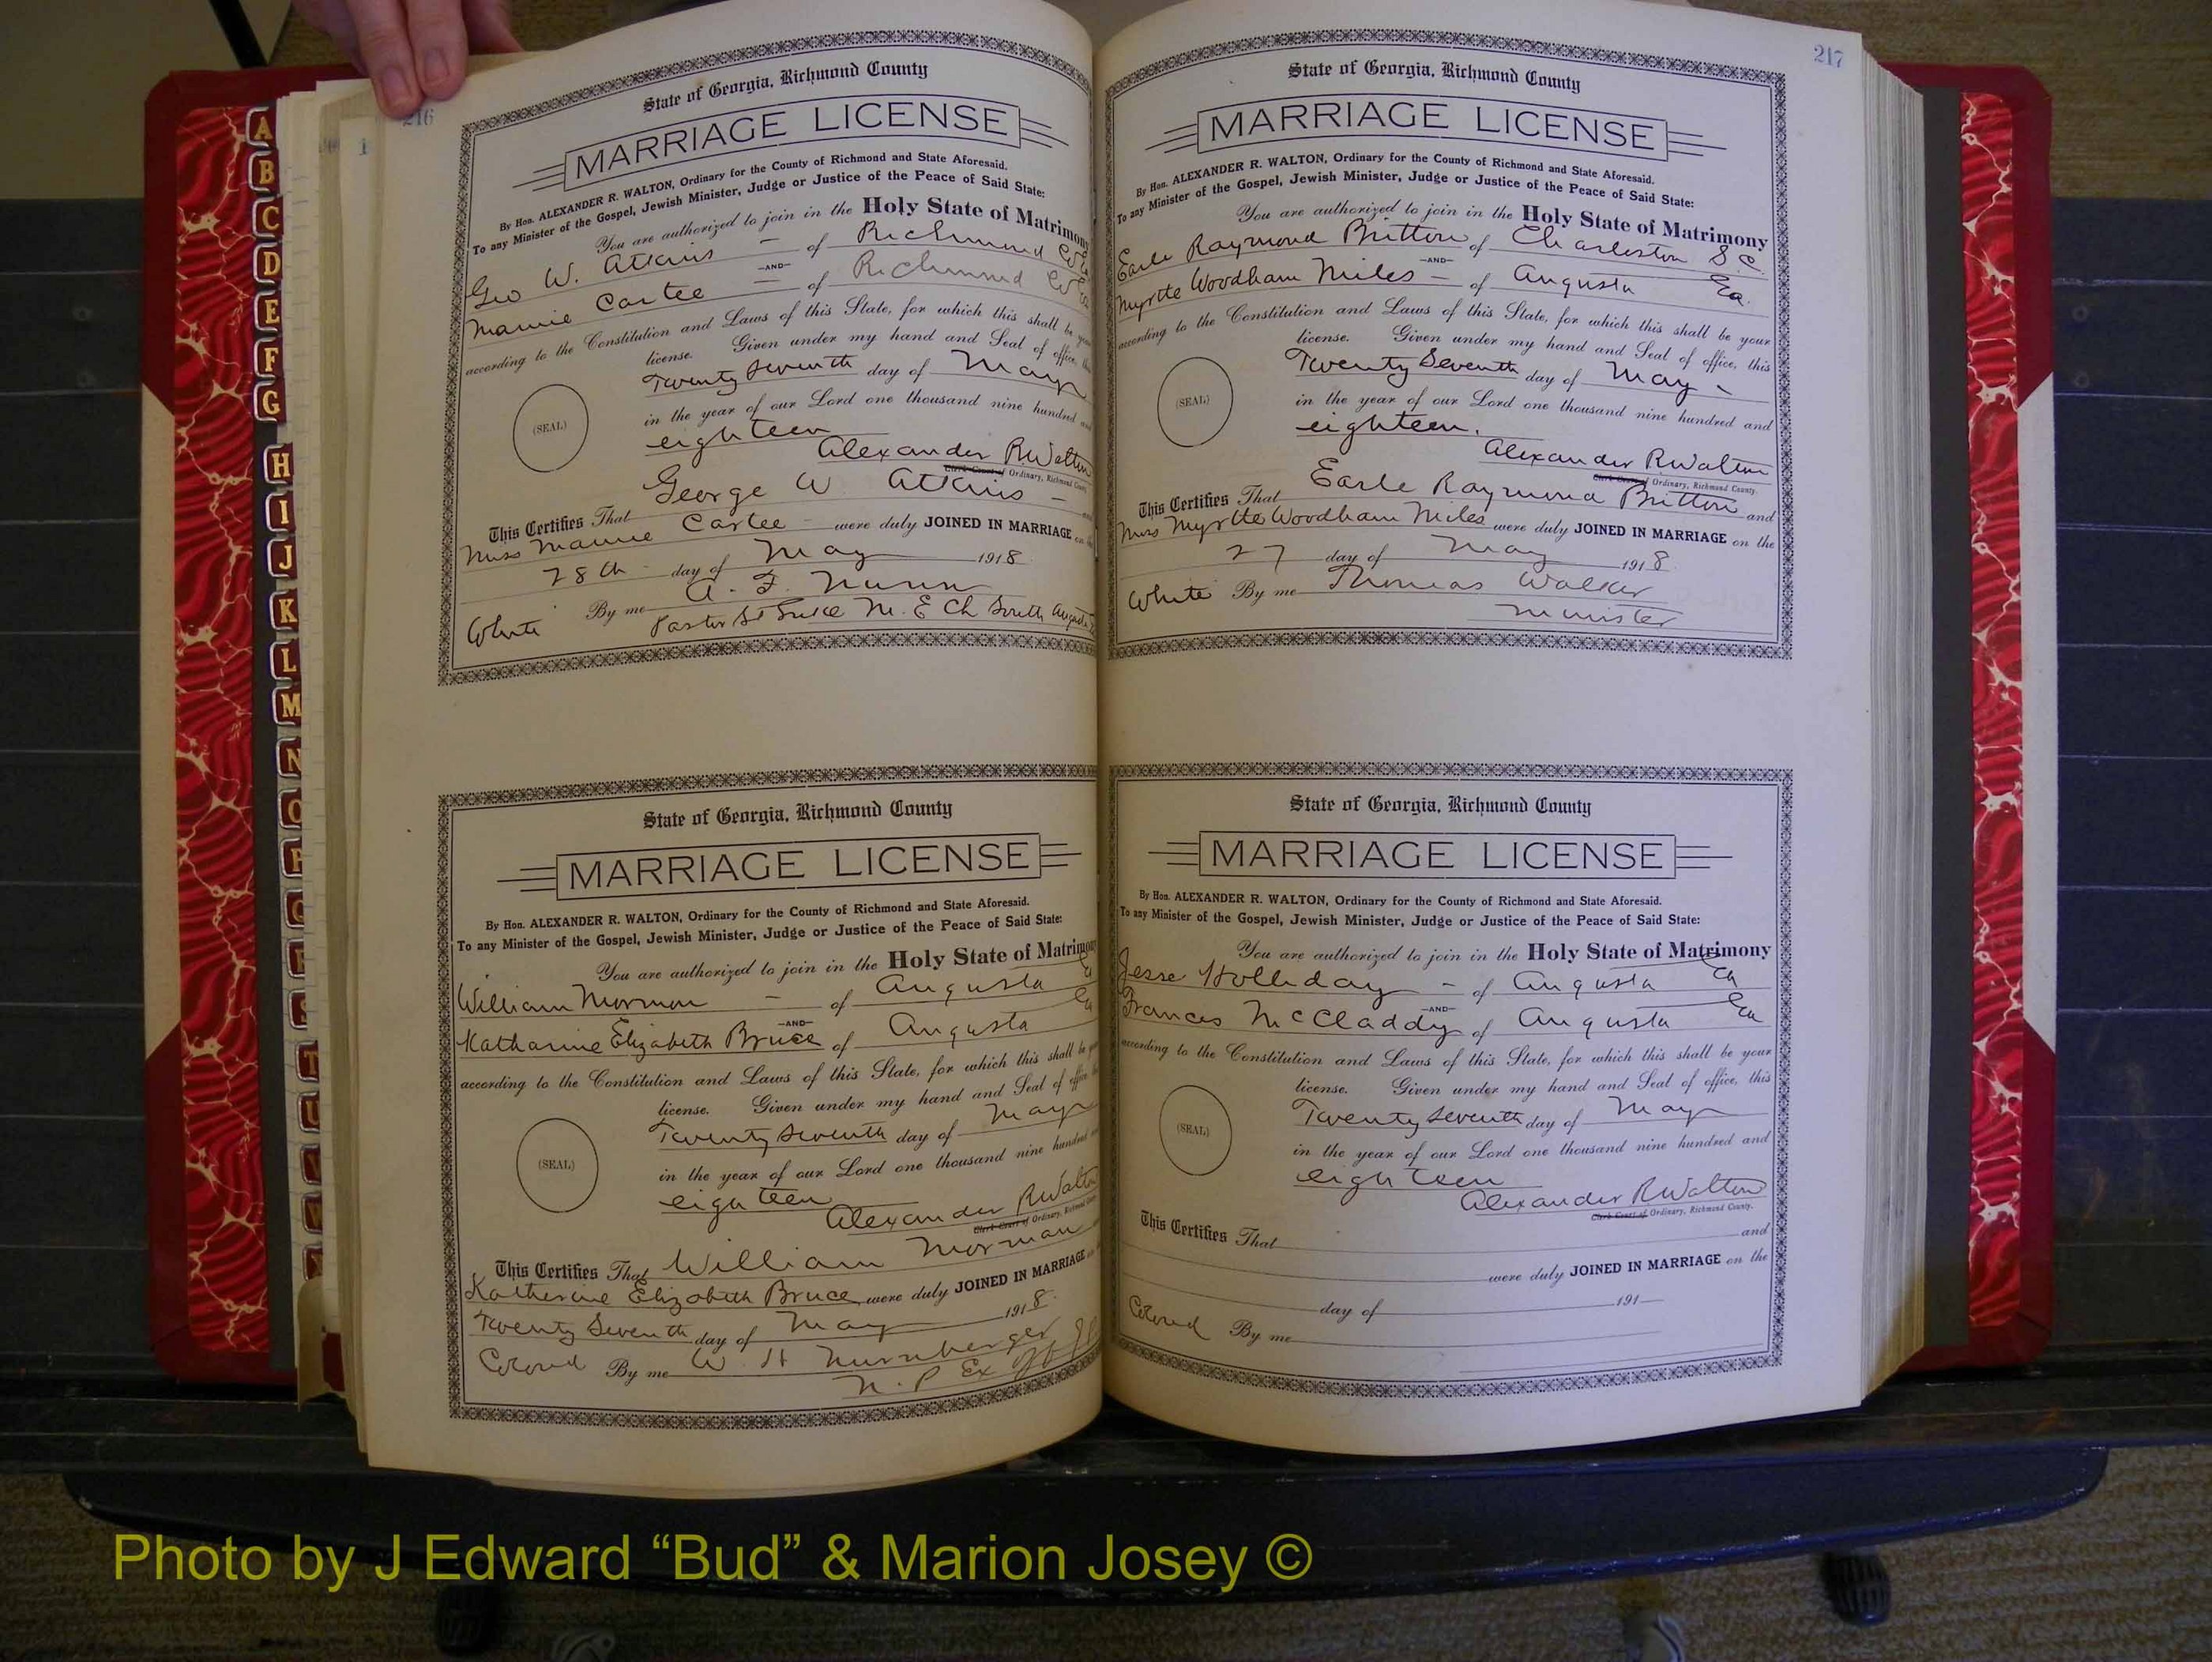 216
State of Georgia, Richmond County
MARRIAGE LICENSE
By Hon. ALEXANDER R. WALTON, Ordinary for the County of Richmond and State Aforesaid.
To any Minister of the Gospel, Jewish Minister, Judge or Justice of the Peace of Said State:
You are authorized to join in the Holy State of Matrimony
Geo W. Atkins - of Richmond Co
-AND-
Mamie Cartee - of Richmond Co
according to the Constitution and Laws of this State, for which this shall be your
license. Given under my hand and Seal of office, this
Twenty Seventh day of May
(SEAL)
in the year of our Lord one thousand nine hundred and
eighteen
Alexander R Walton
Clerk Court of Ordinary, Richmond County
This Certifies That George W Atkins -
Miss Mamie Cartee - were duly JOINED IN MARRIAGE on
28th - day of May 1918
White By me A. F. Nunn
Pastor St Luke M. E Ch South Augusta
State of Georgia, Richmond County
MARRIAGE LICENSE
By Hon. ALEXANDER R. WALTON, Ordinary for the County of Richmond and State Aforesaid.
To any Minister of the Gospel, Jewish Minister, Judge or Justice of the Peace of Said State:
You are authorized to join in the Holy State of Matrimony
William Morman - of Augusta Ga
-AND-
Katharine Elizabeth Bruce of Augusta Ga
according to the Constitution and Laws of this State, for which this shall be your
license. Given under my hand and Seal of office, this
Twenty Seventh day of May
(SEAL)
in the year of our Lord one thousand nine hundred
eighteen
Alexander R Walton
Clerk Court of Ordinary, Richmond County
This Certifies That William Morman
Katherine Elizabeth Bruce were duly JOINED IN MARRIAGE
Twenty Seventh day of May 1918.
Colored By me W. H Nurnberger
N. P Ex Off
217
State of Georgia, Richmond County
MARRIAGE LICENSE
By Hon. ALEXANDER R. WALTON, Ordinary for the County of Richmond and State Aforesaid.
To any Minister of the Gospel, Jewish Minister, Judge or Justice of the Peace of Said State:
You are authorized to join in the Holy State of Matrimony
Earle Raymond Britton of Charleston S.C.
-AND-
Myrtte Woodham Miles - of Augusta Ga.
according to the Constitution and Laws of this State, for which this shall be your
license. Given under my hand and Seal of office, this
Twenty Seventh day of May
(SEAL)
in the year of our Lord one thousand nine hundred and
eighteen.
Alexander R Walton
Clerk Court of Ordinary, Richmond County.
This Certifies That Earle Raymond Britton and
Miss Myrtte Woodham Miles were duly JOINED IN MARRIAGE on the
27 day of May 1918.
White By me Thomas Walker
Minister
State of Georgia, Richmond County
MARRIAGE LICENSE
By Hon. ALEXANDER R. WALTON, Ordinary for the County of Richmond and State Aforesaid.
To any Minister of the Gospel, Jewish Minister, Judge or Justice of the Peace of Said State:
You are authorized to join in the Holy State of Matrimony
Jesse Holliday - of Augusta Ga
-AND-
Frances McCladdy of Augusta Ga
according to the Constitution and Laws of this State, for which this shall be your
license. Given under my hand and Seal of office, this
Twenty Seventh day of May
(SEAL)
in the year of our Lord one thousand nine hundred and
eighteen
Alexander R Walton
Clerk Court of Ordinary, Richmond County.
This Certifies That and
were duly JOINED IN MARRIAGE on the
day of 191
Colored By me
A
B
C
D
E
F
G
H
I
J
K
L
M
N
O
P
Q
R
S
T
U
V
W
Photo by J Edward “Bud” & Marion Josey ©